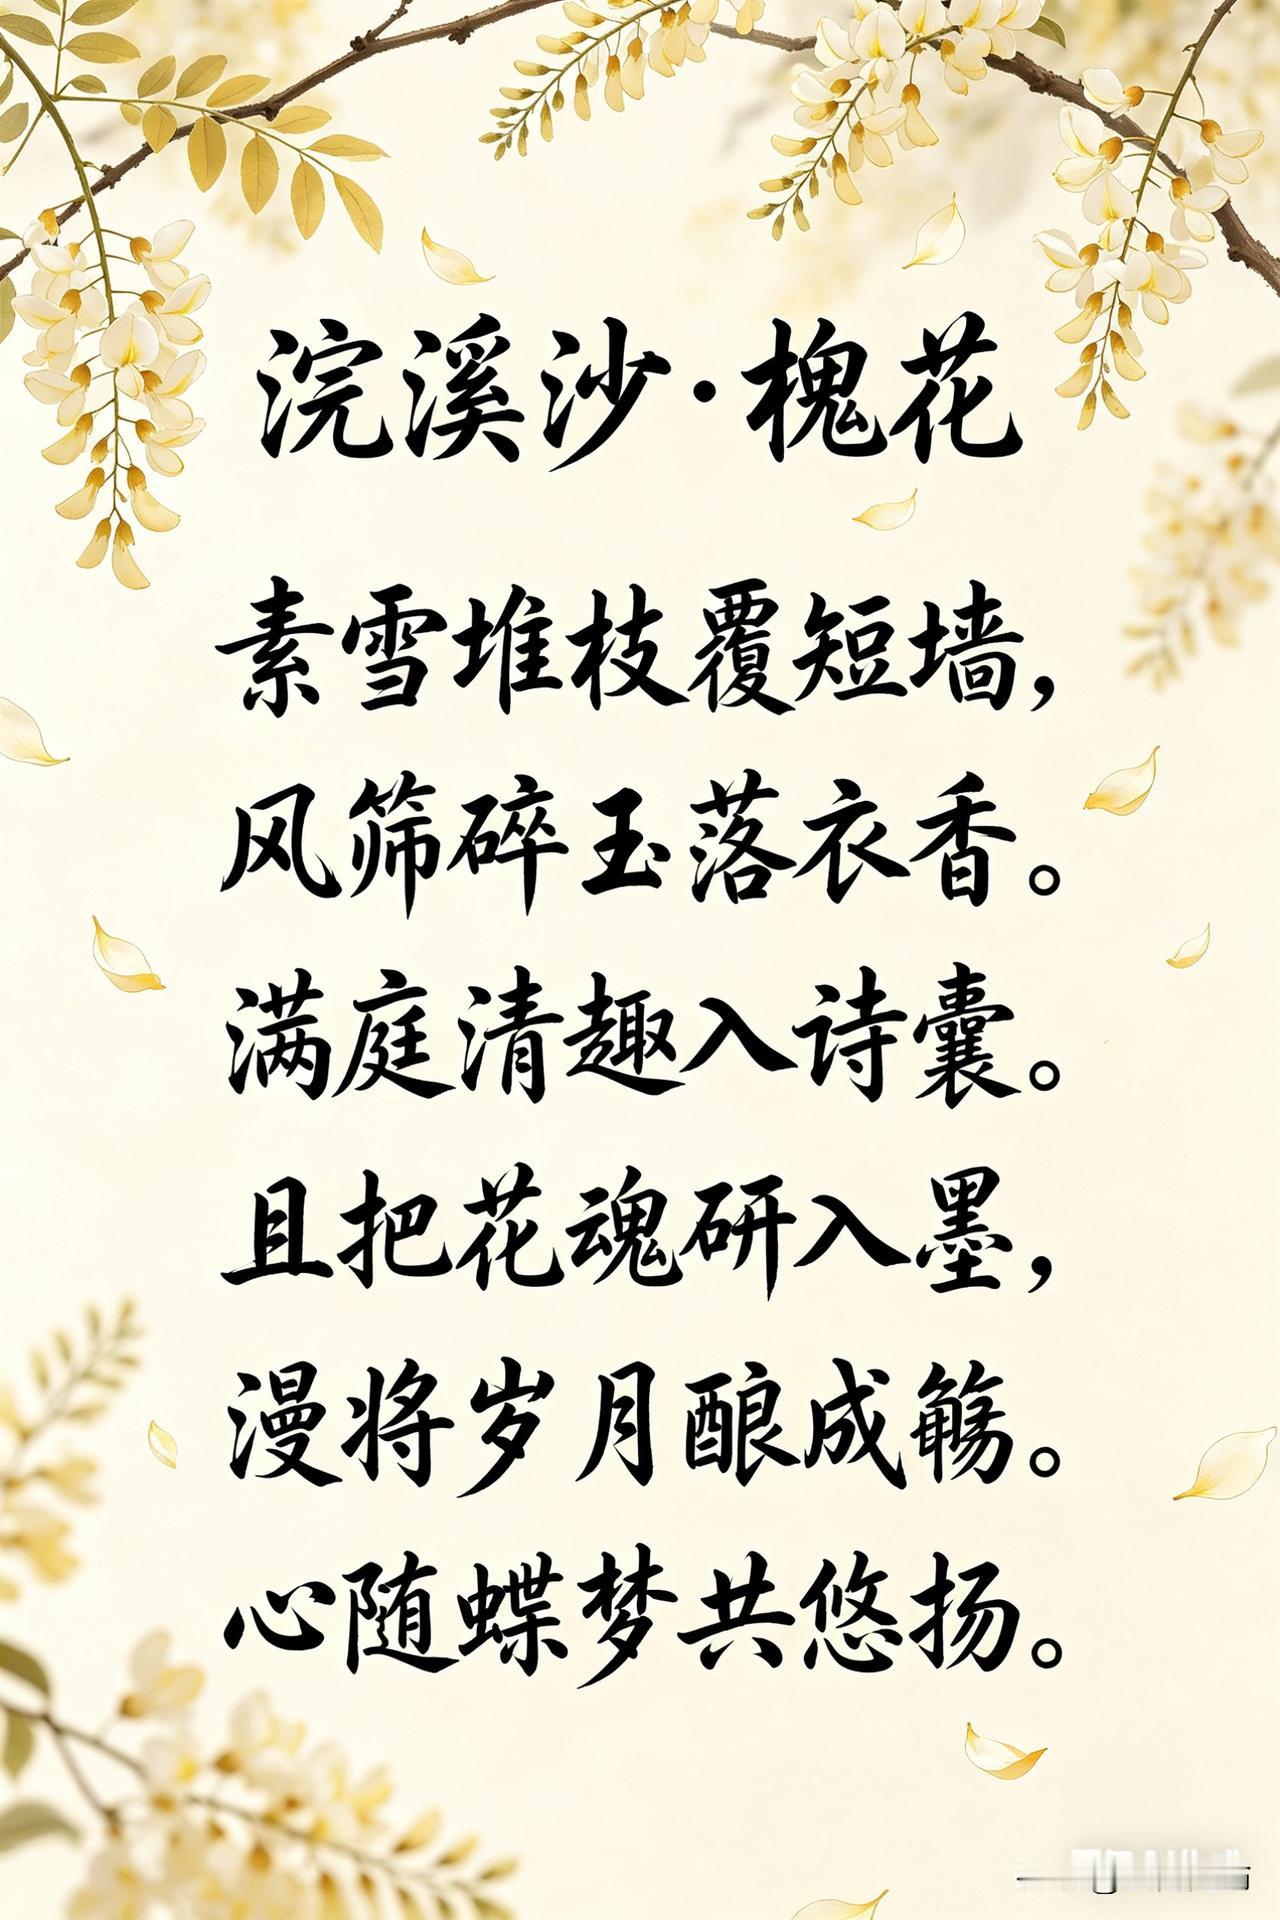 浣溪沙·槐花
素雪堆枝覆短墙，
风筛碎玉落衣香。
满庭清趣入诗囊。
且把花魂研入墨，
漫将岁月酿成觞。
心随蝶梦共悠扬。